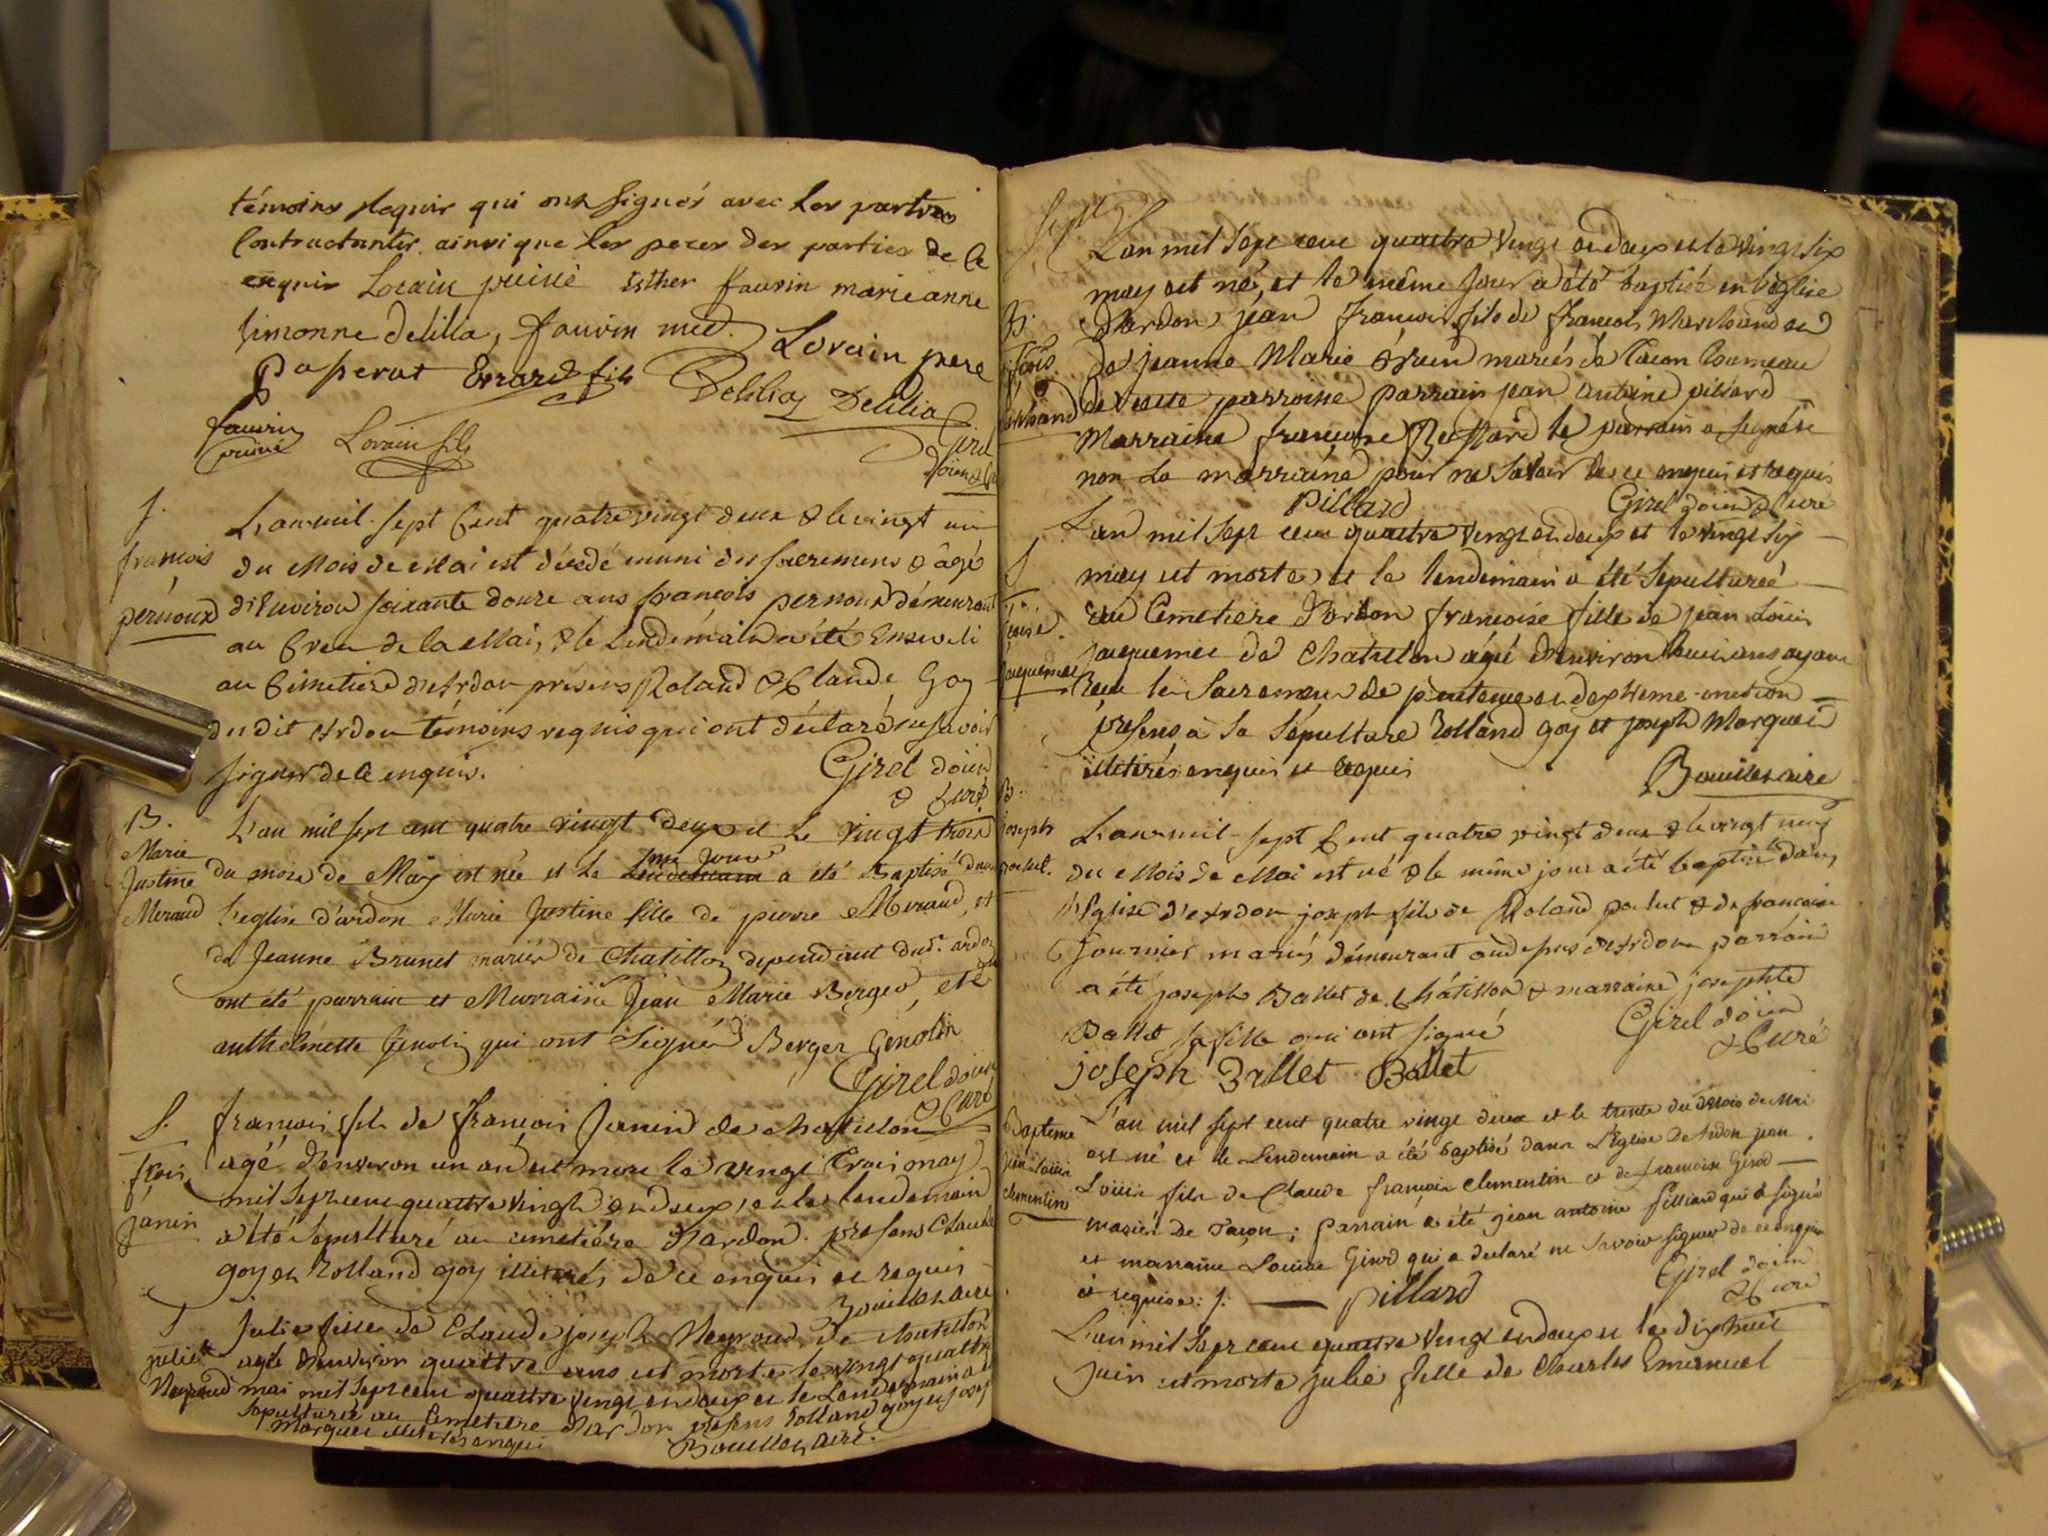 témoins requis qui ont signés avec les parties
Contractantes ainsi que les peres des parties de ce
enquis Lorain puiné Esther fauvin marieanne
simonne delilia, fauvin med. Lorain pere
paperat Evrard fils Delilia Delilia
fauvin puiné Lorain fils Girel doien & Curé
S.
françois
pernoux
L'an mil sept Cent quatre vingt deux & le vingt un
du Mois de Mai est décédé muni des sacremens & âgé
d'Environ soixante douze ans françois pernoux démeurant
au Creu de la Mai, & le Lendémain a été Enseveli
au Cimetiere d'Ardon présens Roland & Claude Goy
du dit Ardon témoins requis qui ont déclaré ne savoir
signer de ce enquis. Girel doien
& Curé
B.
Marie
Justine
Meraud
L'an mil sept cent quatre vingt deux et le vingt trois
du mois de May est née et le même jour a été Baptisé dans
l'eglise d'ardon Marie Justine fille de pierre Meraud, et
de Jeanne Brunet mariés de Chatillon dependant dud. ardon
ont été parrain et Marraine Jean Marie Berger, et
anthelmette Genolin qui ont signé Berger Genolin
Girel doien
& Curé
S.
frois
janin
françois fils de françois Janin de chatillon
agé d'environ un an est mort le vingt trois may
mil sept cent quatre vingt en deux, et le lendemain
a été sepulturé au cimetiére d'ardon. présens Claude
goy et Rolland goy illiterés de ce enquis et requis
Bouillet aire
S
julie
Neyroud
Julie fille de Claude joseph Neyroud de chatillon
agé d'environ quattre ans est morte le vingt quattre
mai mil sept cent quattre vingt en deux et le Lendemain a été
sepulturée au Cimetiere d'ardon présens Rolland goy et josep
Marquet illiterés enquis Bouillet aire.
L'an mil sept cent quattre vingt en deux et le vingt six
may est né, et le même jour a été baptisé en l'église
d'ardon jean françois fils de françois Marchand et
de jeanne Marie Evrin mariés de Tacon hameau
de cette parroisse parrain jean antoine pillard
Marraine francoise le parrain a signé et
non La marraine pour ne savoir de ce enquis et requis
Pillard Girel doien & Curé
B.
frois
Marchand
L'an mil sept cent quattre vingt en deux et le vingt six
may est morte et le lendemain a été sepulturée
au Cemetiere d'ardon francoise fille de jean Louis
jacquemet de Chatillon agé d'environ huit ans ayant
Receu les sacremens de pénitence et d'extreme-onction
présens a sa sépulture Rolland goy et joseph Marquet
illiterés enquis et requis Bouillet aire
S
fçoise.
jacquemet
B.
joseph
pochet.
L'an mil-sept Cent quatre vingt deux & le vingt neuf
du Mois de Mai est né & le même jour a été baptisé dans
l'Eglise d'Ardon joseph fils de Roland pochet & de francoise
fournier mariés démeurant au depus d'Ardon parrain
a été joseph Ballet de Châtillon & marraine josephte
Ballet sa fille qui ont signé Girel doien
& Curé
joseph Ballet Ballet
Bapteme
jean Louis
clementin
L'an mil sept cent quatre vingt deux et le trente du Mois de Mai
est né et le Lendemain a été baptisé dans L'Eglise de Ardon jean
Louis fils de Claude françois clementin et de francoise Girod
mariés de Tacon; parrain a été jean antoine pilliard qui a signé
et marraine Louise Girod qui a declaré ne savoir signer de ce enquise
et requise: Pillard Girel doien
& Curé
L'an mil sept cent quattre vingt en deux et le dixhuit
Juin est morte julie fille de Charles Emanuel